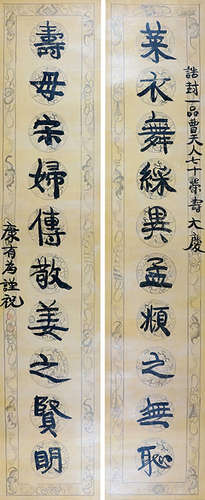 誥封一品曹夫人七十榮壽大慶
萊衣舞綵異孟頫之無恥
壽母宋婦傳敬姜之賢明
康有為謹祝